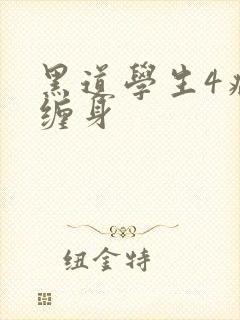 黑道學生4
缠身
纽金特